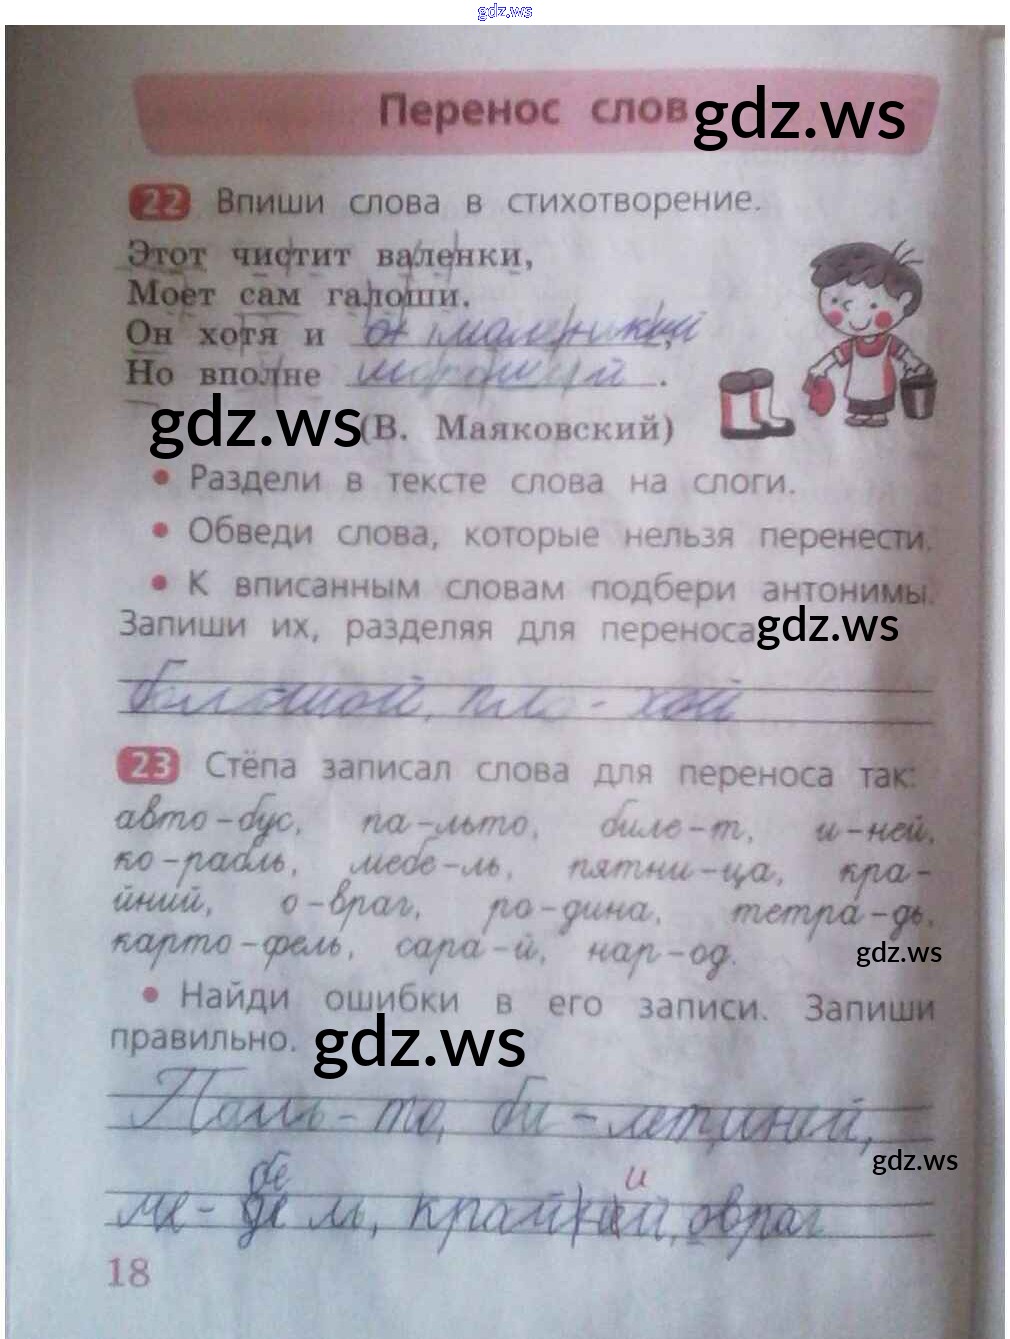 gdz.ws
Перенос слов gdz.ws
22 Впиши слова в стихотворение.
Этот чистит валенки,
Моет сам галоши.
Он хотя и маленький,
Но вполне хороший.
gdz.ws (В. Маяковский)
• Раздели в тексте слова на слоги.
• Обведи слова, которые нельзя перенести.
• К вписанным словам подбери антонимы.
Запиши их, разделяя для переноса gdz.ws
большой, пло-хой
23 Стёпа записал слова для переноса так:
авто-бус, па-льто, биле-т, и-ней,
ко-рабль, мебе-ль, пятни-ца, кра-
йний, о-враг, ро-дина, тетра-дь,
карто-фель, сара-й, нар-од.
gdz.ws
• Найди ошибки в его записи. Запиши
правильно. gdz.ws
Паль-то, би-лет, иней,
gdz.ws
бе и
ме-бель, край, овраг
18